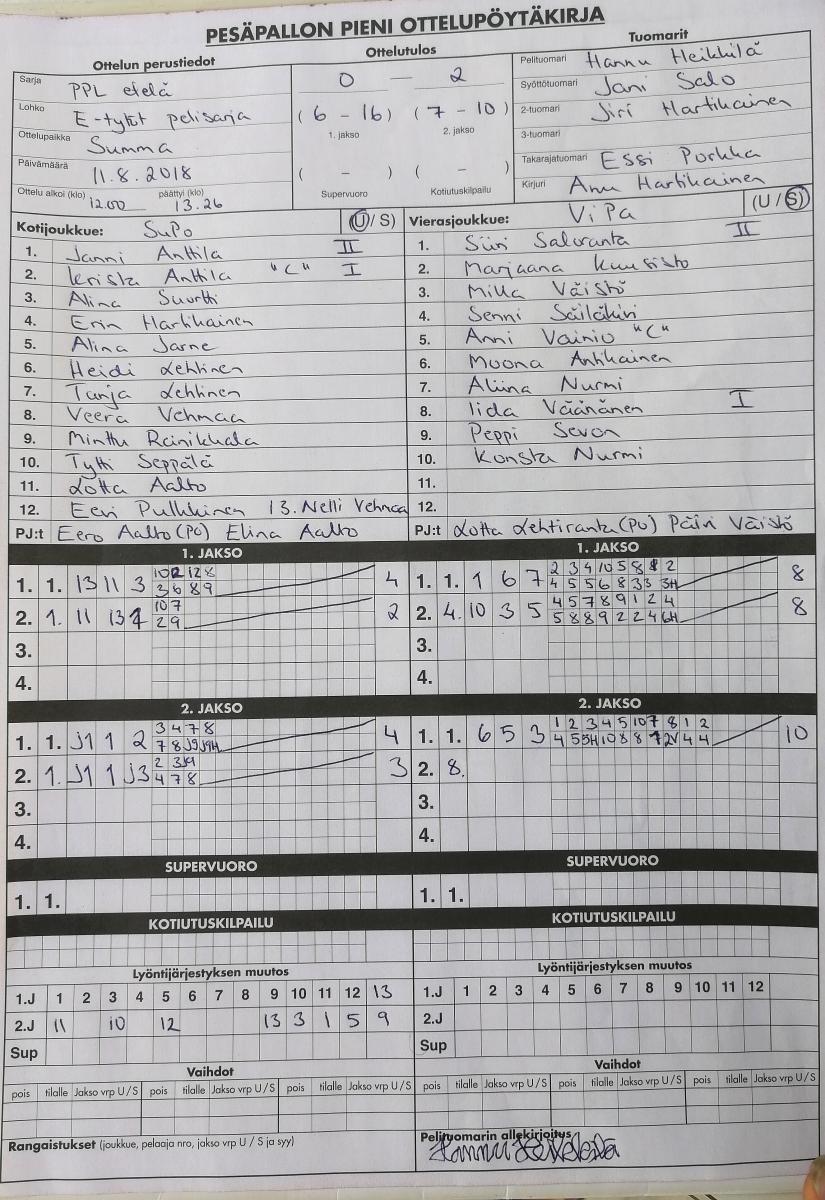 PESÄPALLON PIENI OTTELUPÖYTÄKIRJA
Ottelun perustiedot
Sarja PPL etelä
Lohko E-tytöt pelisarja
Ottelupaikka Summa
Päivämäärä 11.8.2018
Ottelu alkoi (klo) 12.00 päättyi (klo) 13.26
Ottelutulos
0 — 2
(6 - 16) (7 - 10)
1. jakso 2. jakso
( - ) ( - )
Supervuoro Kotiutuskilpailu
Tuomarit
Pelituomari Hannu Heikkilä
Syöttötuomari Jani Salo
2-tuomari Jiri Hartikainen
3-tuomari
Takarajatuomari Essi Porkka
Kirjuri Anu Hartikainen
Kotijoukkue: SuPo (U/S)
1. Janni Anttila II
2. Krista Anttila "C" I
3. Alina Suortti
4. Erin Hartikainen
5. Alina Jarne
6. Heidi Lehtinen
7. Tanja Lehtinen
8. Veera Vehmaa
9. Minttu Rainikkala
10. Tytti Seppälä
11. Lotta Aalto
12. Eevi Pulkkinen 13. Nelli Vehmaa
PJ:t Eero Aalto (PO) Elina Aalto
Vierasjoukkue: ViPa (U/S)
1. Siiri Saloranta II
2. Marjaana Kuusisto
3. Milla Väistö
4. Senni Säiläkivi
5. Anni Vainio "C"
6. Moona Antikainen
7. Aliina Nurmi
8. Iida Väänänen I
9. Peppi Sevon
10. Konsta Nurmi
11.
12.
PJ:t Lotta Lehtiranta (PO) Päivi Väistö
1. JAKSO
1. 1. 13 11 3 4
3 6 8 9
2. 1. 11 13 2
10 7
2 9
3.
4.
1. JAKSO
1. 1. 1 6 7 8
2. 4. 10 3 5 8
4 5 7 8 9 1 2 4
5 8 8 9 2 2 4 6H
3.
4.
2. JAKSO
1. 1. J1 1 2 4
3 4 7 8
7 8 J9 J9H
2. 1. J1 1 J3 3
4 7 8
3.
4.
2. JAKSO
1. 1. 6 5 3 10
1 2 3 4 5 10 7 8 1 2
2. 8.
3.
4.
SUPERVUORO
1. 1.
SUPERVUORO
1. 1.
KOTIUTUSKILPAILU
KOTIUTUSKILPAILU
Lyöntijärjestyksen muutos
1.J 1 2 3 4 5 6 7 8 9 10 11 12 13
2.J 11 10 12 13 3 1 5 9
Sup
Lyöntijärjestyksen muutos
1.J 1 2 3 4 5 6 7 8 9 10 11 12
2.J
Sup
Vaihdot
pois tilalle Jakso vrp U/S pois tilalle Jakso vrp U/S pois tilalle Jakso vrp U/S
Vaihdot
pois tilalle Jakso vrp U/S pois tilalle Jakso vrp U/S pois tilalle Jakso vrp U/S
Rangaistukset (joukkue, pelaaja nro, jakso vrp U / S ja syy)
Pelituomarin allekirjoitus